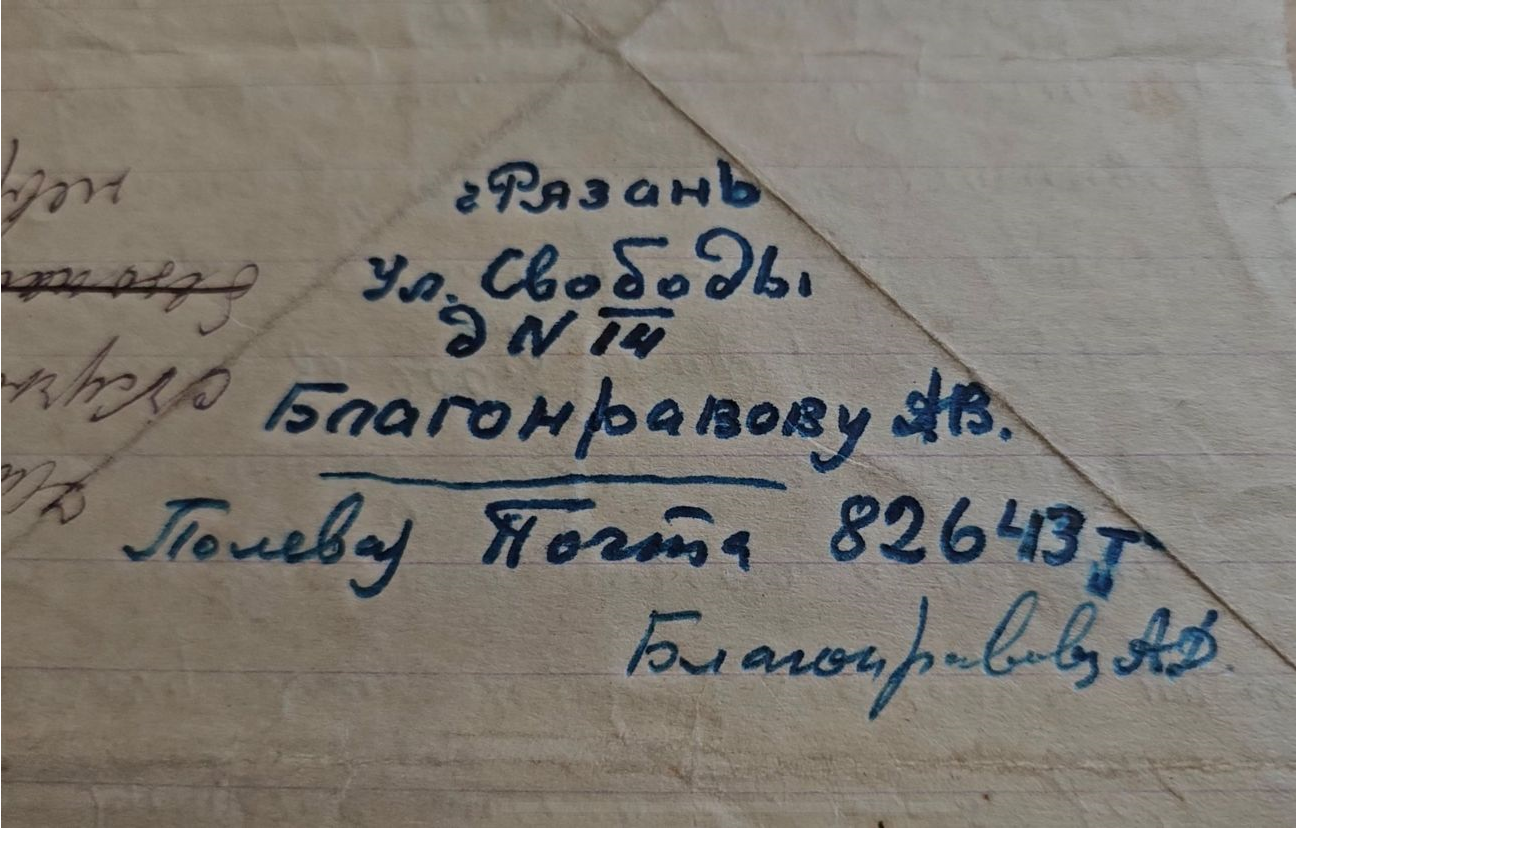 г Рязань
Ул. Свободы
д N 14
Благонравову АВ.
Полевая Почта 82643 Т
Благонравов АД.